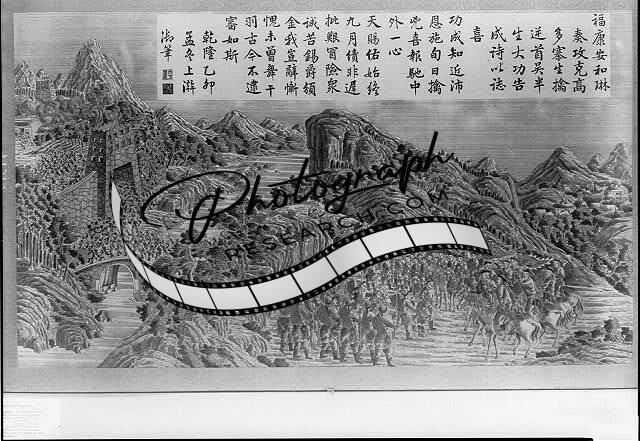 福康安和琳
奏攻克高
多寨生擒
逆首吳半
生大功告
成詩以誌
喜
功成知近沛
恩施旬日擒
兇喜報馳中
外一心
天賜佑始終
九月績非遲
批艱冒險衆
誠苦錫爵頒
金我豈辭慚
愧未曾舞干
羽古今不逮
審如斯
乾隆乙卯
孟冬上澣
御筆
Photograph
RESEARCH.COM